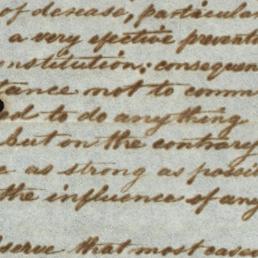 of desease, particular
a very efective preventi
onstitution; consequen
tance not to comm
ed to do anything
but on the contrary
e as strong as possi
the influence of any
bserve that most cases